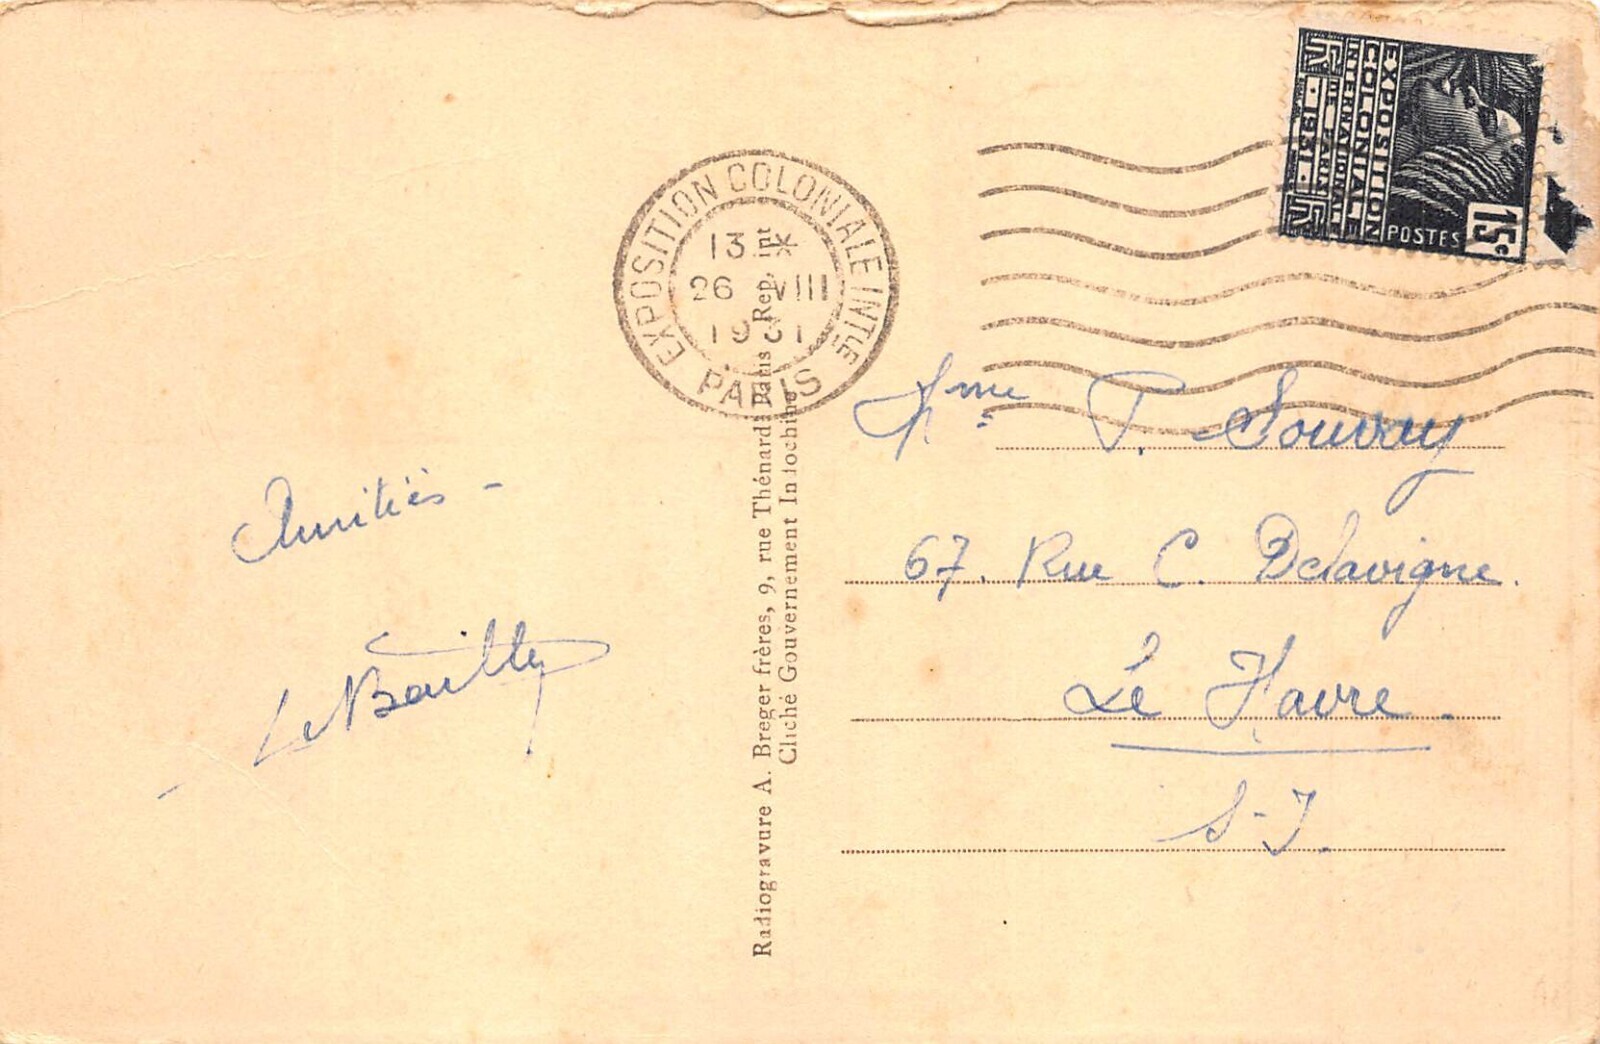 EXPOSITION COLONIALE INTLE
PARIS
13 *
26 VIII
1931
EXPOSITION
COLONIALE
INTERNATIONALE
DE PARIS
RF · 1931 · RF
POSTES
15c
Amitiés -
Mme P. Souvray
67. Rue C. Delavigne.
Le Havre.
S-I.
Radiogravure A. Breger frères, 9, rue Thénard Paris Rep. int
Cliché Gouvernement Indochine